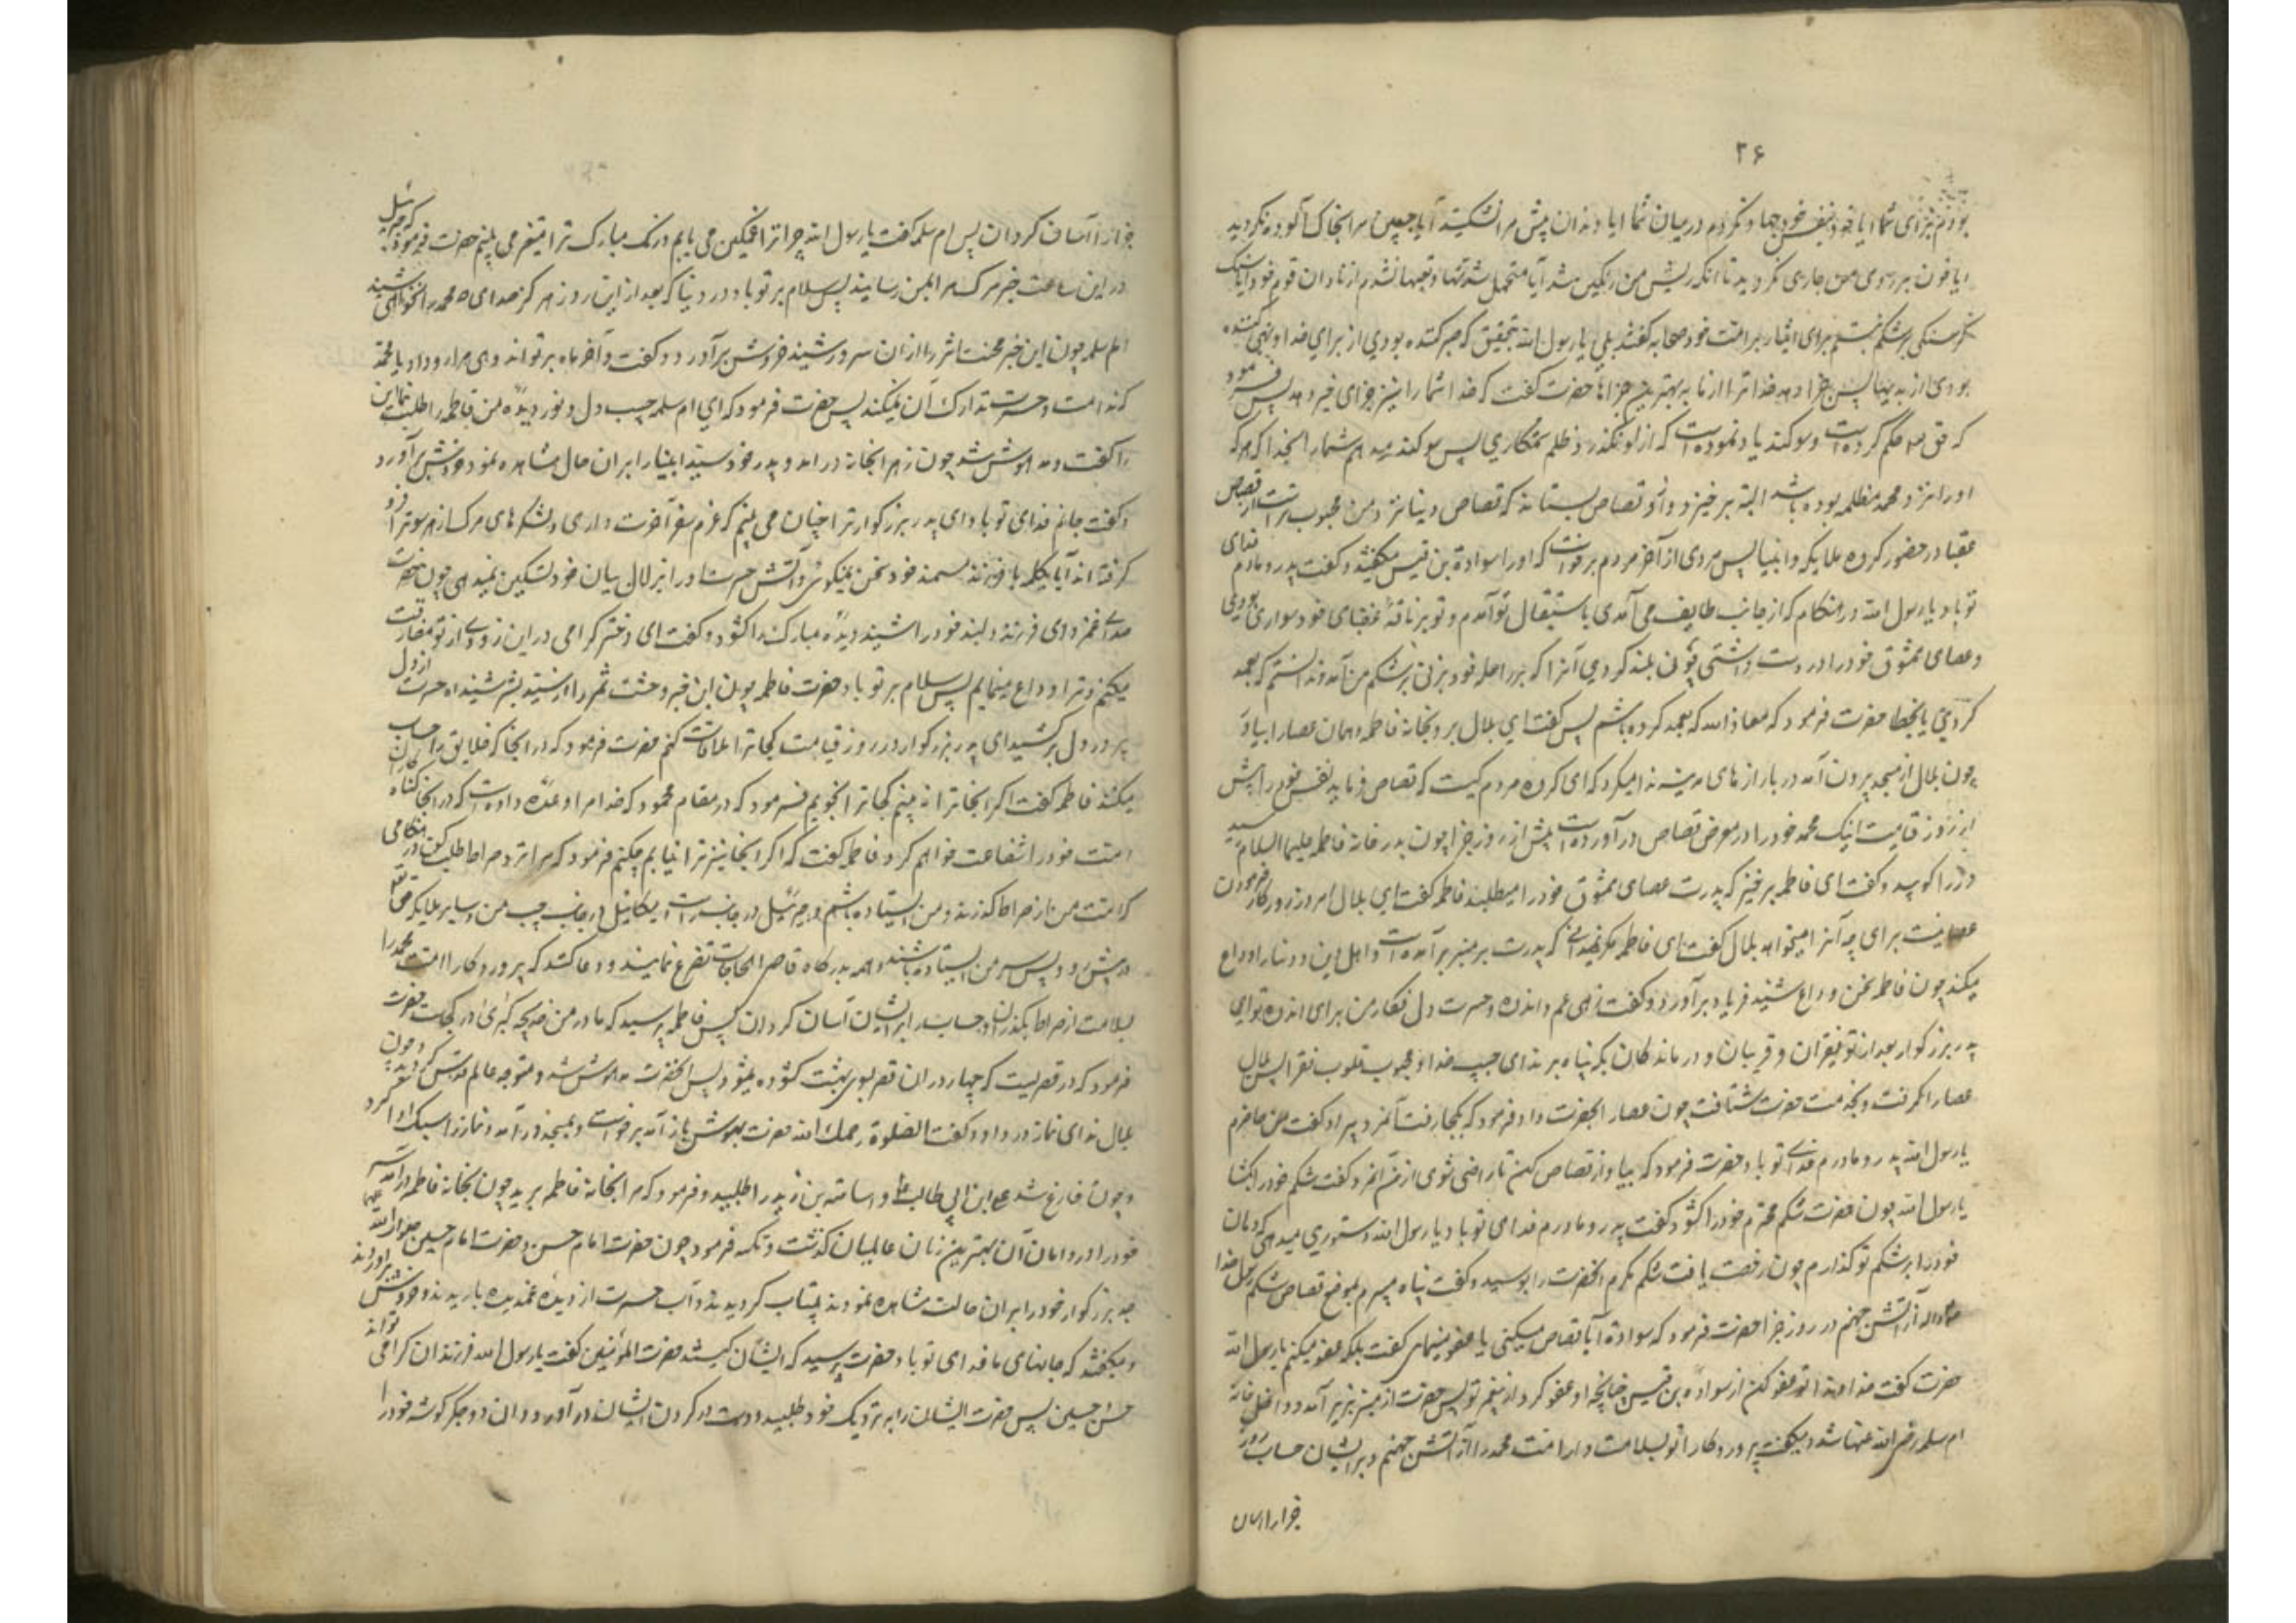 ۲۶
بودم برای شما ایا خود بنفس خود جهاد نکردم در میان شما ایا دندان پیش مرا نشکستید آیا جبین مرا بخاک آلوده نکردید
ایا خون بر روی من جاری نکردید تا انکه ریش من رنگین شد آیا متحمل شدتها و تعبها نشدم از نادان قوم خود ایا سنک
کرسنکی بر شکم نبستم برای ایثار بر امت خود صحابه گفتند بلی یا رسول الله بتحقیق که صبر کننده بودی از برای خدا و نهی کننده
بودی از بدیها پس جزا دهد خدا ترا از ما به بهترین جزاها حضرت گفت که خدا شما را نیز جزای خیر دهد پس فرمود
که حق تع حکم کرده است و سوکند یاد نموده است که از او نکذرد ظلم ستمکاری پس سوکند میدهم شما را بخدا که هرکه
اورا نزد محمد مظلمه بوده باشد البته برخیزد و از او قصاص بستاند که قصاص دنیا نزد من محبوب تر است از قصاص
عقبا در حضور کروه ملایکه و انبیا پس مردی از آخر مردم برخواست که اورا سوادة بن قیس میکفتند و کفت پدر و مادرم فدای
تو باد یا رسول الله در هنکام که از جانب طایف می آمدی باستقبال تو آمدم و تو بر ناقهٔ غضبای خود سوار بودی
و عصای ممشوق خود را در دست داشتی چون بلند کردی آنرا که بر راحله خود بزنی بر شکم من آمد و ندانستم که بعمد
کردی یا بخطا حضرت فرمود که معاذ الله که بعمد کرده باشم پس کفت ای بلال برو بخانه فاطمه و همان عصا را بیاور
چون بلال از مسجد بیرون آمد در بازارهای مدینه ندا میکرد که ای کروه مردم کیست که قصاص فرماید نفس خود را پیش
از روز قیامت اینک محمد خود را در معرض قصاص در آورده است پیش از روز جزا چون بدر خانه فاطمه علیها السلام رسید
در را کوبید و کفت ای فاطمه برخیز که پدرت عصای ممشوق خود را میطلبد فاطمه کفت ای بلال امروز روز کار فرمودن
عصا نیست برای چه آنرا میخواهد بلال کفت ای فاطمه مکر نمیدانی که پدرت بر منبر بر آمده است و اهل دین و دنیا را وداع
میکند چون فاطمه سخن وداع شنید فریاد برآورد و کفت زهی غم و اندوه و حسرت دل فکار من برای اندوه تو ای
پدر بزرکوار بعد از تو فقیران و غریبان و درماندکان بکه پناه برند ای حبیب خدا و محبوب قلوب فقرا پس بلال
عصا را کرفت و بخدمت حضرت شتافت چون عصا را بحضرت داد فرمود که بکجا رفت آنمرد پیر او کفت من حاضرم
یا رسول الله پدر و مادرم فدای تو باد حضرت فرمود که بیا و از قصاص کن تا راضی شوی از من آنمرد کفت شکم خود را بکشا
یا رسول الله چون حضرت شکم محترم خود را کشود کفت پدر و مادرم فدای تو باد یا رسول الله دستوری میدهی که دهان
خود را بر شکم تو گذارم چون رخصت یافت شکم مکرم انحضرت را بوسید و کفت پناه میبرم بموضع قصاص شکم رسول خدا
از آتش جهنم در روز جزا حضرت فرمود که سوادة آیا قصاص میکنی یا عفو مینمای کفت بلکه عفو میکنم یا رسول الله
حضرت کفت خداوندا تو عفو کن از سواده بن قیس چنانچه او عفو کرد از پیغمبر تو پس حضرت از منبر بزیر آمد و داخل خانه
ام سلمه رضی الله عنها شد و میکفت پروردکارا تو بسلامت دار امت محمد را از آتش جهنم و بر ایشان حساب روز
جزا را آسان
جزا را آسان کردان پس ام سلمه کفت یا رسول الله چرا ترا غمکین می یابم و رنک مبارک ترا متغیر می بینم حضرت فرمود که جبرئیل
در این ساعت خبر مرک مرا بمن رسانید پس سلام بر تو باد در دنیا که بعد از این روز هرکز صدای محمد را نخواهی شنید
ام سلمه چون این خبر محنت اثر را از ان سرور شنید خروش برآورد و کفت وآخرناه بر تو اندوهی مرا رو داد یا محمد
که ندامت و حسرت تدارک آن نمیکند پس حضرت فرمود که ای ام سلمه حبیب دل و نور دیده من فاطمه را طلب نما این
را کفت و مدهوش شد چون زهرا بخانه در امد و پدر خود سید انبیا را بر ان حال مشاهده نمود خروش برآورد
و کفت جانم فدای تو باد ای پدر بزرکوار ترا چنان می بینم که عزم سفر آخرت داری و لشکرهای مرک از هر سو ترا فرو
کرفته اند آیا یکلمه با فرزند مستمند خود سخن نمیکوئی و آتش حسرت اورا بزلال بیان خود تسکین نمیدهی چون حضرت
صدای غمزدای فرزند دلبند خود را شنید دیده مبارک را کشود و کفت ای دختر کرامی در این زودی از تو مفارقت
میکنم و ترا وداع مینمایم پس سلام بر تو باد حضرت فاطمه چون این خبر وحشت ثمر را از سید بشر شنید اه حسرت از دل
پر درد دل برکشید ای پدر بزرکوار در روز قیامت کجا ترا ملاقات کنم حضرت فرمود که در انجا که خلایق را حساب
میکنند فاطمه کفت اکر انجا ترا نه بینم کجا ترا بجویم فرمود که در مقام محمود که خدا مرا وعده داده است که در انجا گناه کاران
امت خود را شفاعت خواهم کرد فاطمه کفت که اکر انجا نیز ترا نیابم چکنم فرمود که مرا نزد صراط طلب کن در هنکامی
که امت من از صراط کذرند و من ایستاده باشم و جبرئیل در جانب راست و میکائیل در جانب چپ من و سایر ملایکه حق تع
در پیش رو و پس سر من ایستاده باشند و همه بدرکاه قاضی الحاجات تضرع نمایند و دعا کنند که پروردکارا امت محمد را
بسلامت از صراط بکذران و حساب را بر ایشان آسان کردان پس فاطمه پرسید که مادر من خدیجه کبری در کجاست حضرت
فرمود که در قصریست که چهار در ان قصر بسوی بهشت کشوده میشود پس انحضرت مدهوش شد و متوجه عالم قدس کردید و چون
بلال ندای نماز در داد و کفت الصلوة رحمک الله حضرت بهوش باز آمد برخواست و بمسجد در آمد و نماز را سبک ادا کرد
و چون فارغ شد علی ابن ابی طالب و اسامة بن زید را طلبید و فرمود که مرا بخانه فاطمه برید چون بخانه فاطمه در آمد سر
خود را در دامان آن بهترین زنان عالمیان کذاشت و تکیه فرمود چون حضرت امام حسن و حضرت امام حسین
جد بزرکوار خود را بر ان حالت مشاهده نمودند بیتاب کردیدند و آب حسرت از دیده غمدیده باریدند و خروش برآوردند
و میکفتند که جانهای ما فدای تو باد حضرت پرسید که ایشان کیستند حضرت امیر المؤمنین کفت یا رسول الله فرزندان کرامی تو اند
حسن و حسین پس حضرت ایشان را به نزدیک خود طلبید و دست در کردن ایشان در آورد و ان دو جکر کوشه خود را